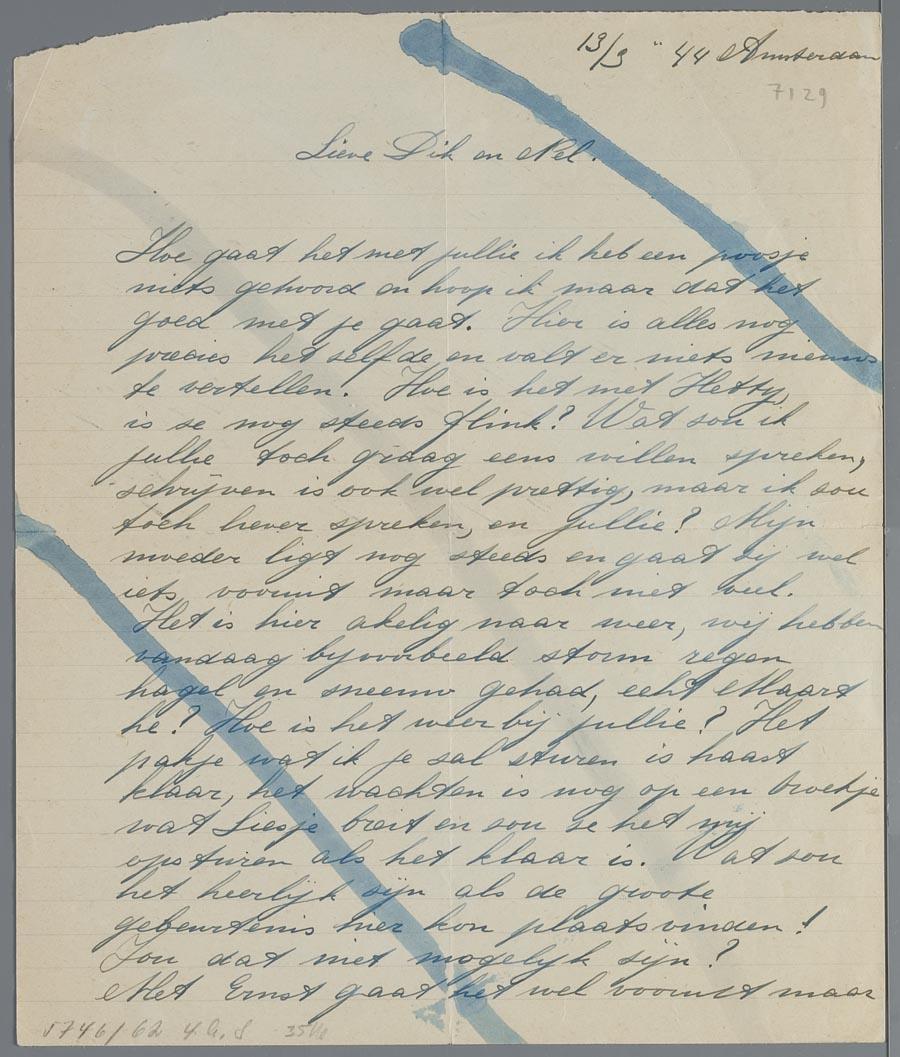 13/3 " 44 Amsterdam
7129
Lieve Dik en Nel.
Hoe gaat het met jullie ik heb een poosje
niets gehoord en hoop ik maar dat het
goed met je gaat. Hier is alles nog
precies het selfde en valt er niets nieuws
te vertellen. Hoe is het met Hetty,
is se nog steeds flink? Wat sou ik
jullie toch graag eens willen spreken,
schrijven is ook wel prettig, maar ik sou
toch liever spreken, en jullie? Mijn
moeder ligt nog steeds en gaat sij wel
iets vooruit maar toch niet veel.
Het is hier akelig naar weer, wij hebben
vandaag bijvoorbeeld storm regen
hagel en sneeuw gehad, echt Maart
he? Hoe is het weer bij jullie? Het
pakje wat ik je sal sturen is haast
klaar, het wachten is nog op een broekje
wat Liesje breit en sou se het mij
opsturen als het klaar is. Wat sou
het heerlijk sijn als de groote
gebeurtenis hier kon plaatsvinden!
Sou dat niet mogelijk sijn?
Met Ernst gaat het wel vooruit maar